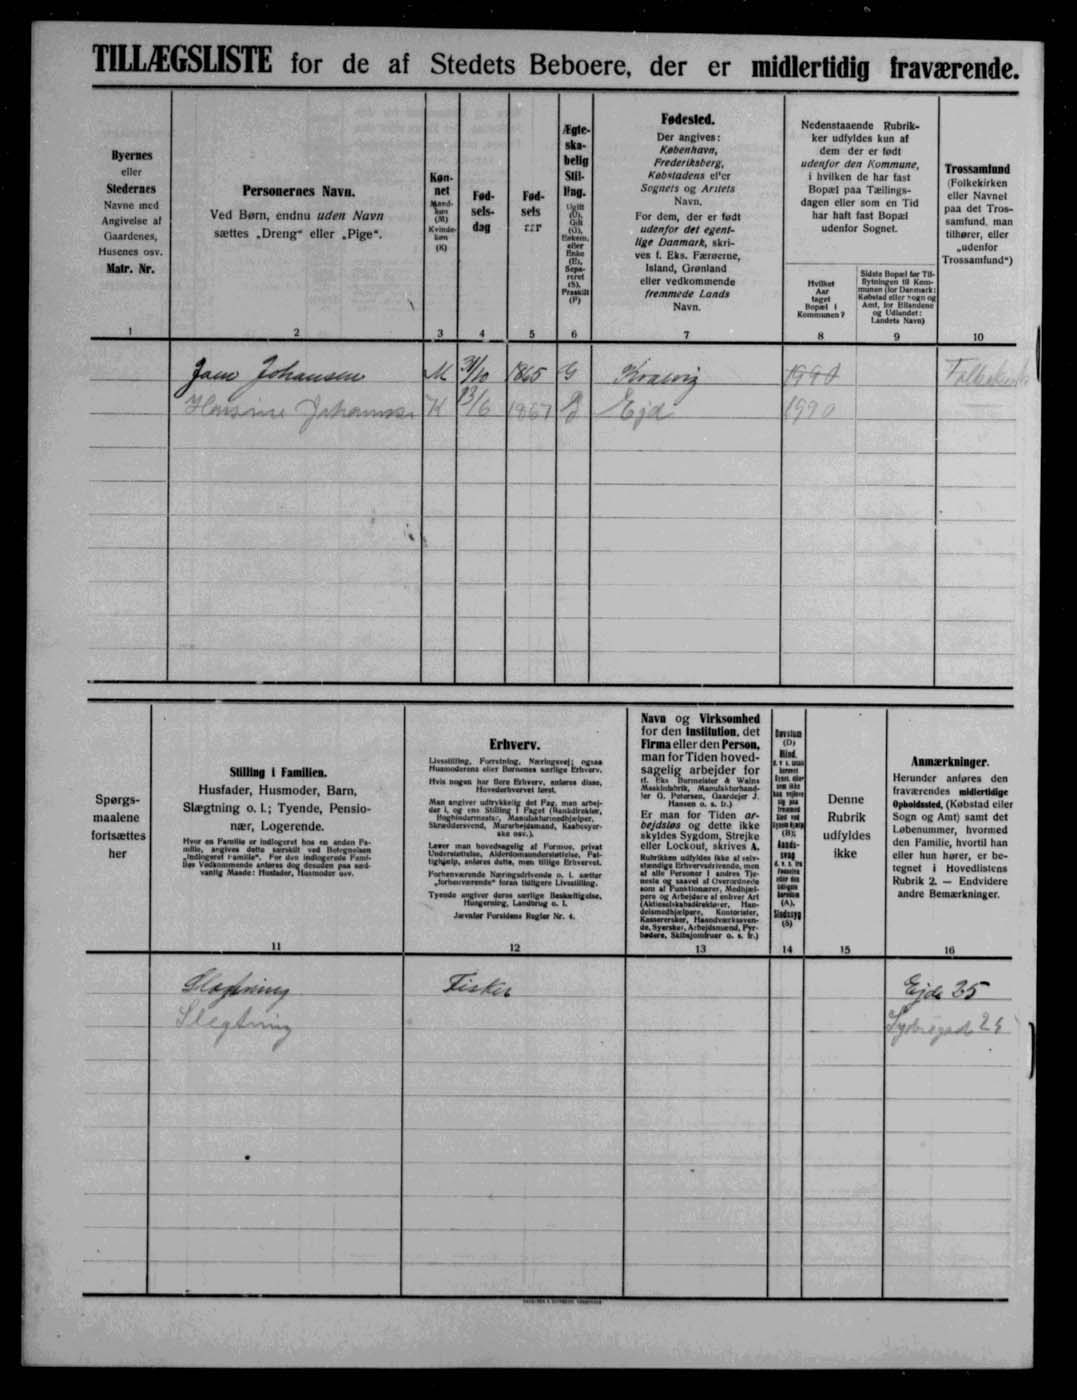 TILLÆGSLISTE for de af Stedets Beboere, der er midlertidig fraværende.
Byernes
eller
Stedernes
Navne med
Angivelse af
Gaardenes,
Husenes osv.
Matr. Nr.
1
Personernes Navn.
Ved Børn, endnu uden Navn
sættes „Dreng“ eller „Pige“.
2
Køn-
net
Mand-
køn
(M)
Kvinde-
køn
(K)
3
Fød-
sels-
dag
4
Fød-
sels
aar
5
Ægte-
ska-
belig
Stil-
ling.
Ugift
(U),
Gift
(G),
Enkem.
eller
Enke
(E),
Sepa-
reret
(S),
Fraskilt
(F)
6
Fødested.
Der angives:
København,
Frederiksberg,
Købstadens eller
Sognets og Amtets
Navn.
For dem, der er født
udenfor det egent-
lige Danmark, skri-
ves f. Eks. Færøerne,
Island, Grønland
eller vedkommende
fremmede Lands
Navn.
7
Nedenstaaende Rubrik-
ker udfyldes kun af
dem der er født
udenfor den Kommune,
i hvilken de har fast
Bopæl paa Tællings-
dagen eller som en Tid
har haft fast Bopæl
udenfor Sognet.
Hvilket
Aar
taget
Bopæl i
Kommunen?
8
Sidste Bopæl før Til-
flytningen til Kom-
munen (for Danmark:
Købstad eller Sogn og
Amt, for Bilandene
og Udlandet:
Landets Navn)
9
Trossamfund
(Folkekirken
eller Navnet
paa det Tros-
samfund, man
tilhører, eller
„udenfor
Trossamfund“)
10
Johansen M 1865 G
K 13/6 1867 G Ejde
Spørgs-
maalene
fortsættes
her
Stilling i Familien.
Husfader, Husmoder, Barn,
Slægtning o. l.; Tyende, Pensio-
nær, Logerende.
Hvor en Familie er indlogeret hos en anden Fa-
milie, angives dette særskilt ved Betegnelsen
„Indlogeret Familie“. For den indlogerede Fami-
lies Vedkommende anføres dog desuden paa sæd-
vanlig Maade: Husfader, Husmoder osv.
11
Erhverv.
Livsstilling, Forretning, Næringsvej; ogsaa
Husmoderens eller Børnenes særlige Erhverv.
Hvis nogen har flere Erhverv, anføres disse,
Hovederhvervet først.
Man angiver udtrykkelig det Fag, man arbej-
der i, og ens Stilling i Faget (Bankdirektør,
Bogbindermester, Manufakturmedhjælper,
Skræddersvend, Murarbejdsmand, Kaabesyer-
ske osv.).
Lever man hovedsagelig af Formue, privat
Understøttelse, Alderdomsunderstøttelse, Fat-
tighjælp, anføres dette, men tillige Erhvervet.
Forhenværende Næringsdrivende o. l. sætter
„forhenværende“ foran tidligere Livsstilling.
Tyende angiver deres særlige Beskæftigelse,
Husgerning, Landbrug o. l.
Jævnfør Forsidens Regler Nr. 4.
12
Navn og Virksomhed
for den Institution, det
Firma eller den Person,
man for Tiden hoved-
sagelig arbejder for
(f. Eks Burmeister & Wains
Maskinfabrik, Manufakturhand-
ler G. Petersen, Gaardejer J.
Hansen o. s. fr.)
Er man for Tiden ar-
bejdsløs og dette ikke
skyldes Sygdom, Strejke
eller Lockout, skrives A.
Rubrikken udfyldes ikke af selv-
stændige Erhvervsdrivende, men
af alle Personer i andres Tje-
neste og saavel af Overordnede
som af Funktionærer, Medhjæl-
pere og Arbejdere af enhver Art
(Aktieselskabsdirektører, Han-
delsmedhjælpere, Kontorister,
Kassererskar, Haandværkssven-
de, Syersker, Arbejdsmænd, Fyr-
bødere, Skibsjomfruer o. s. fr.)
13
Døvstum
(D)
Blind,
(B);
Aands-
svag
(A),
Sindssyg
(S)
14
Denne
Rubrik
udfyldes
ikke
15
Anmærkninger.
Herunder anføres den
fraværendes midlertidige
Opholdssted, (Købstad eller
Sogn og Amt) samt det
Løbenummer, hvormed
den Familie, hvortil han
eller hun hører, er be-
tegnet i Hovedlistens
Rubrik 2. — Endvidere
andre Bemærkninger.
16
Slægtning Fisker Ejde 25
Slegtning